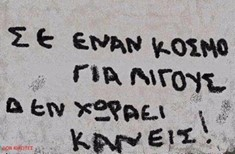 ΣΕ ΕΝΑΝ ΚΟΣΜΟ
ΓΙΑ ΛΙΓΟΥΣ
ΔΕΝ ΧΩΡΑΕΙ
ΚΑΝΕΙΣ!